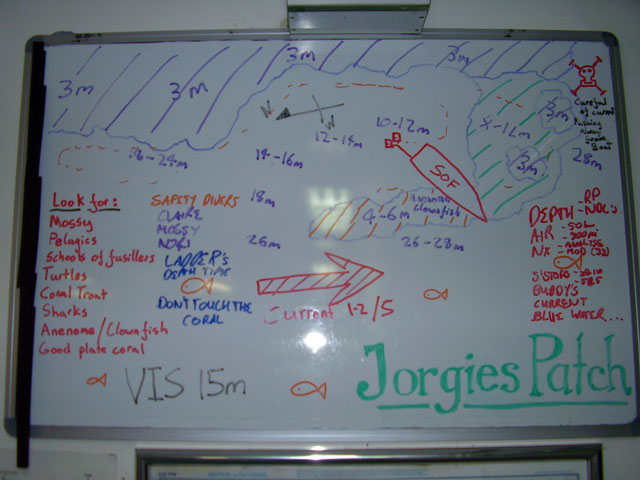 3m
3m
3m
3m
3m
N
10-12m
8-12m
3m
3m
28m
12-14m
18-24m
14-16m
18m
26m
SOF
4-6m
Clownfish
25-28m
Careful
of current
Pushing
away
from
Boat
Look for:
Mossy
Pelagics
Schools of fusillers
Turtles
Coral Trout
Sharks
Anenome/Clownfish
Good plate coral
SAFETY DIVERS
CLAIRE
MOSSY
NORI
LADDER'S
DEPTH TIME
DON'T TOUCH THE
CORAL
Current 1-2/5
DEPTH - RP
- NDL'S
AIR - 50L
NX
BUDDY'S
CURRENT
BLUE WATER...
VIS 15m
Jorgies Patch